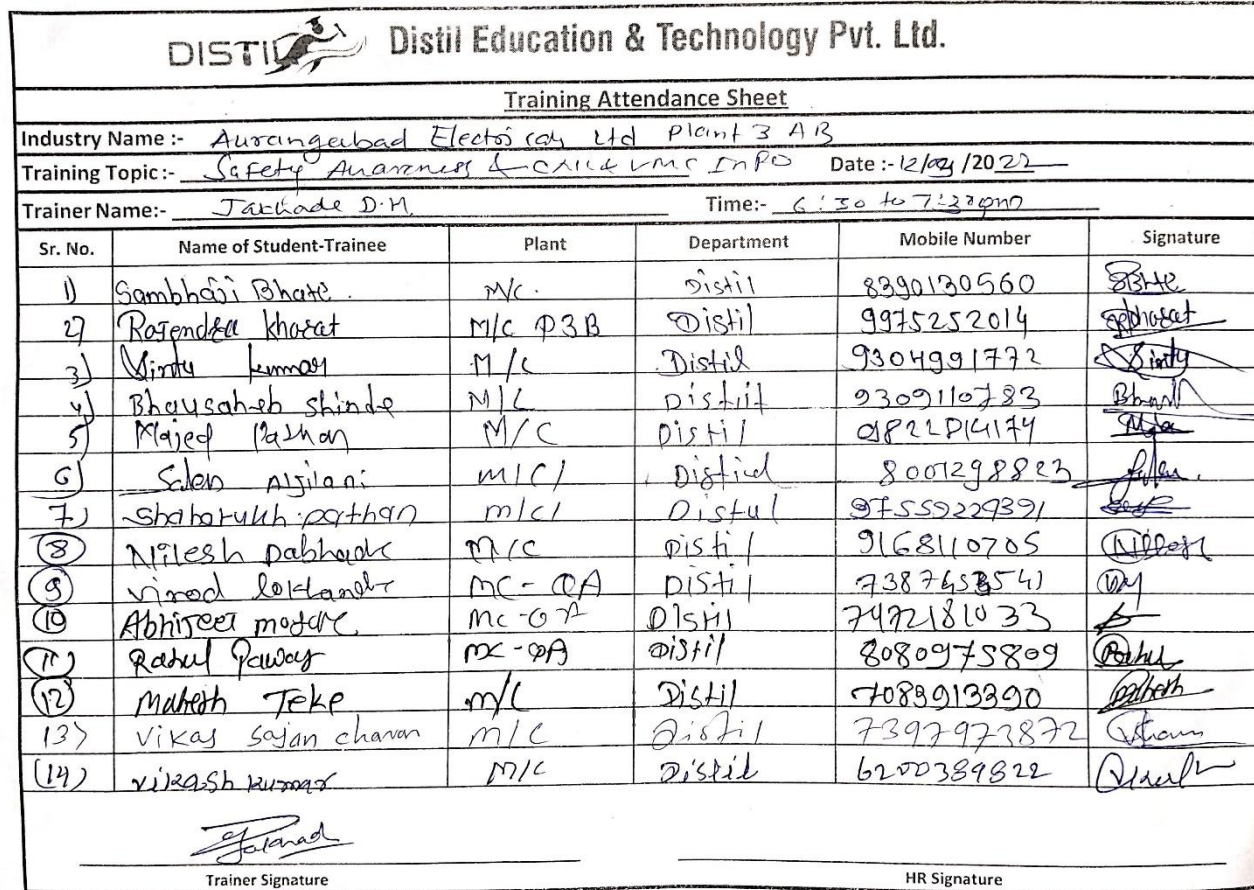 DISTIL Distil Education & Technology Pvt. Ltd.
Training Attendance Sheet
Industry Name :- Aurangabad Electrical Ltd Plant 3 AB
Training Topic :- Safety Awareness & VMC Info Date :- 12/ /2022
Trainer Name:- Jakhade D.M. Time:- 6:30 to 7:30pm
Sr. No. Name of Student-Trainee Plant Department Mobile Number Signature
1) Sambhaji Bhate. M/C. Distil 8390130560
2) Rajendra kharat M/C P3B Distil 9975252014
3) kummar M/C Distil 9304991772 Sintu
4) Bhausaheb shinde M/C Distil 9309110783
5) Majed Pathan M/C Distil
6) Saleb Aljilani M/C/ Distil 8001298823
7) Shaharukh pathan m/c/ Distul 97559229391
8 Nilesh Dabhade M/C Disti/ 9168110705 Nilesh
9 vinod lokhande MC-QA Disti/
10 Abhijeet mogare MC-QA Distil 7472181033
11) Rahul Pawar MC-QA Distil 8080975809 Rahul
12 Mahesh Teke m/c Distil 7083913390 Mahesh
13) Vikas Sajan chavan m/c Distil 7397973872
(14) vikash kumar M/C Distil 6200389822
Trainer Signature HR Signature